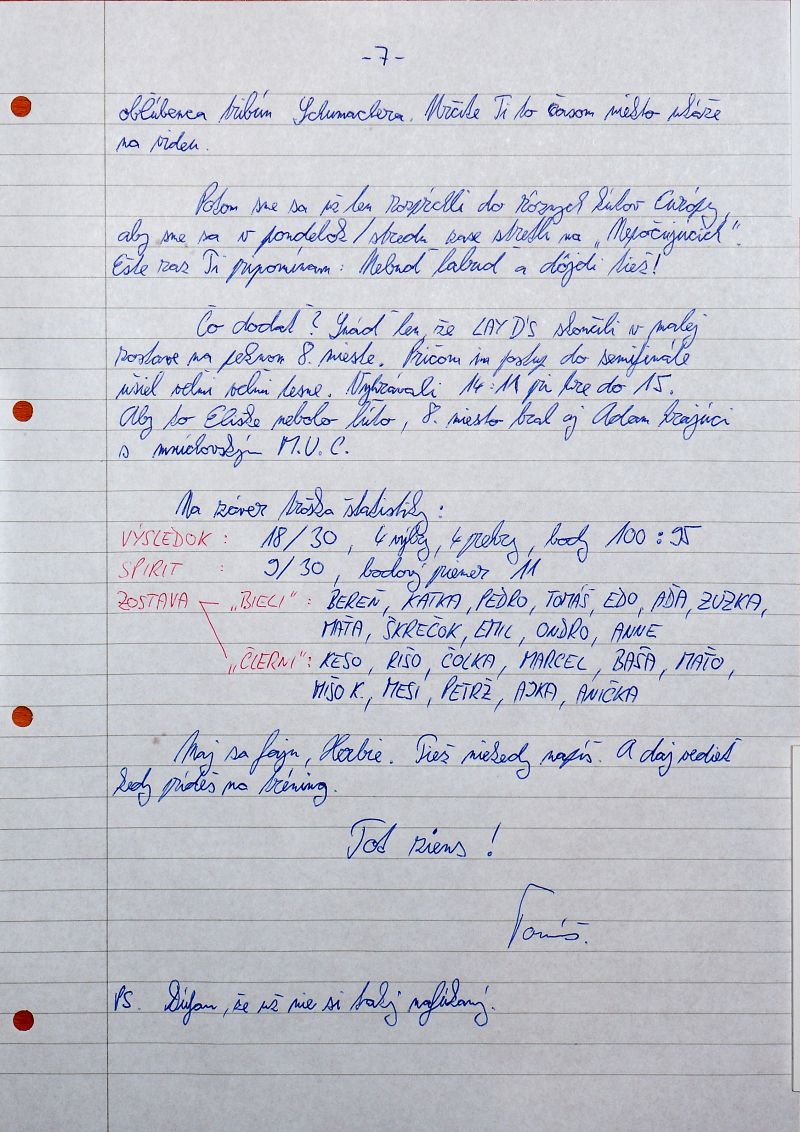 -7-
obľúbenca tribún Schumachera. Určite Ti to časom niekto ukáže
na videu.
Potom sme sa už len rozpŕchli do rôznych kútov Európy,
aby sme sa v pondelok/stredu zase stretli na „Nepočujúcich".
Ešte raz Ti pripomínam: Nebuď labuď a dôjdi tiež!
Čo dodať? Snáď len, že LAYD'S skončili v malej
zostave na peknom 8. mieste. Pričom im postup do semifinále
ušiel veľmi veľmi tesne. Vyhrávali 14:11 pri hre do 15.
Aby to Eliške nebolo ľúto, 8. miesto bral aj Adam hrajúci
s mníchovským M.U.C.
Na záver troška štatistiky:
VÝSLEDOK : 18/30, 4 výhry, 4 prehry, body 100:95
SPIRIT : 9/30, bodový priemer 11
ZOSTAVA „BIELI": BEREŇ, KATKA, PEDRO, TOMÁŠ, EDO, AĎA, ZUZKA,
MAŤA, ŠKREČOK, EMIL, ONDRO, ANNE
„ČIERNI": KESO, RIŠO, ČOLKA, MARCEL, BAŠA, MAŤO,
MIŠO K., MESI, PETRŽ, AJKA, ANIČKA
Maj sa fajn, Herbie. Tiež niekedy napíš. A daj vedieť
kedy prídeš na tréning.
Tot ziens!
Tomáš.
PS. Dúfam, že už nie si taký nafúkaný.